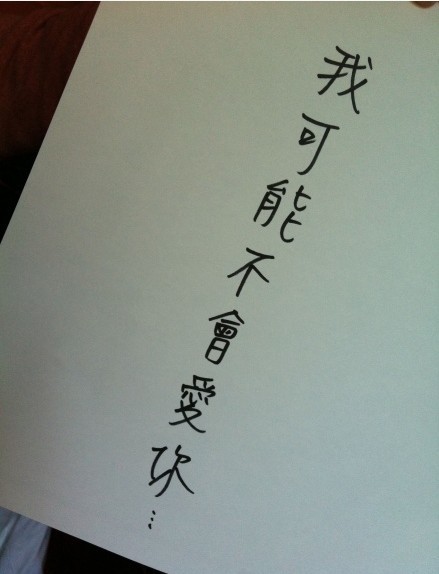 我可能不會愛你...